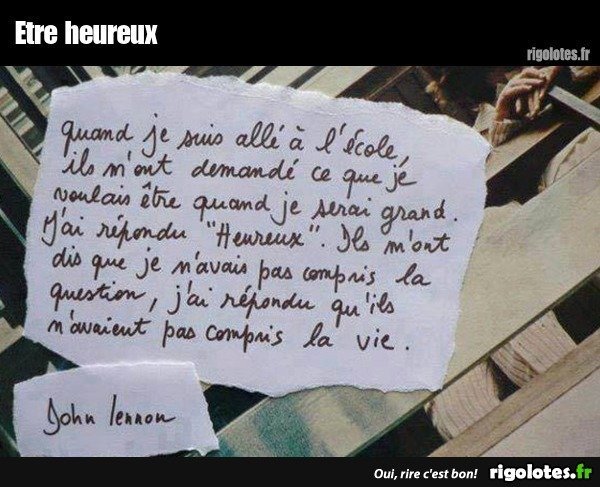 Etre heureux
rigolotes.fr
quand je suis allé à l'école,
ils m'ont demandé ce que je
voulais être quand je serai grand.
J'ai répondu "Heureux". Ils m'ont
dis que je n'avais pas compris la
question, j'ai répondu qu'ils
n'avaient pas compris la vie.
John lennon
Oui, rire c'est bon! rigolotes.fr